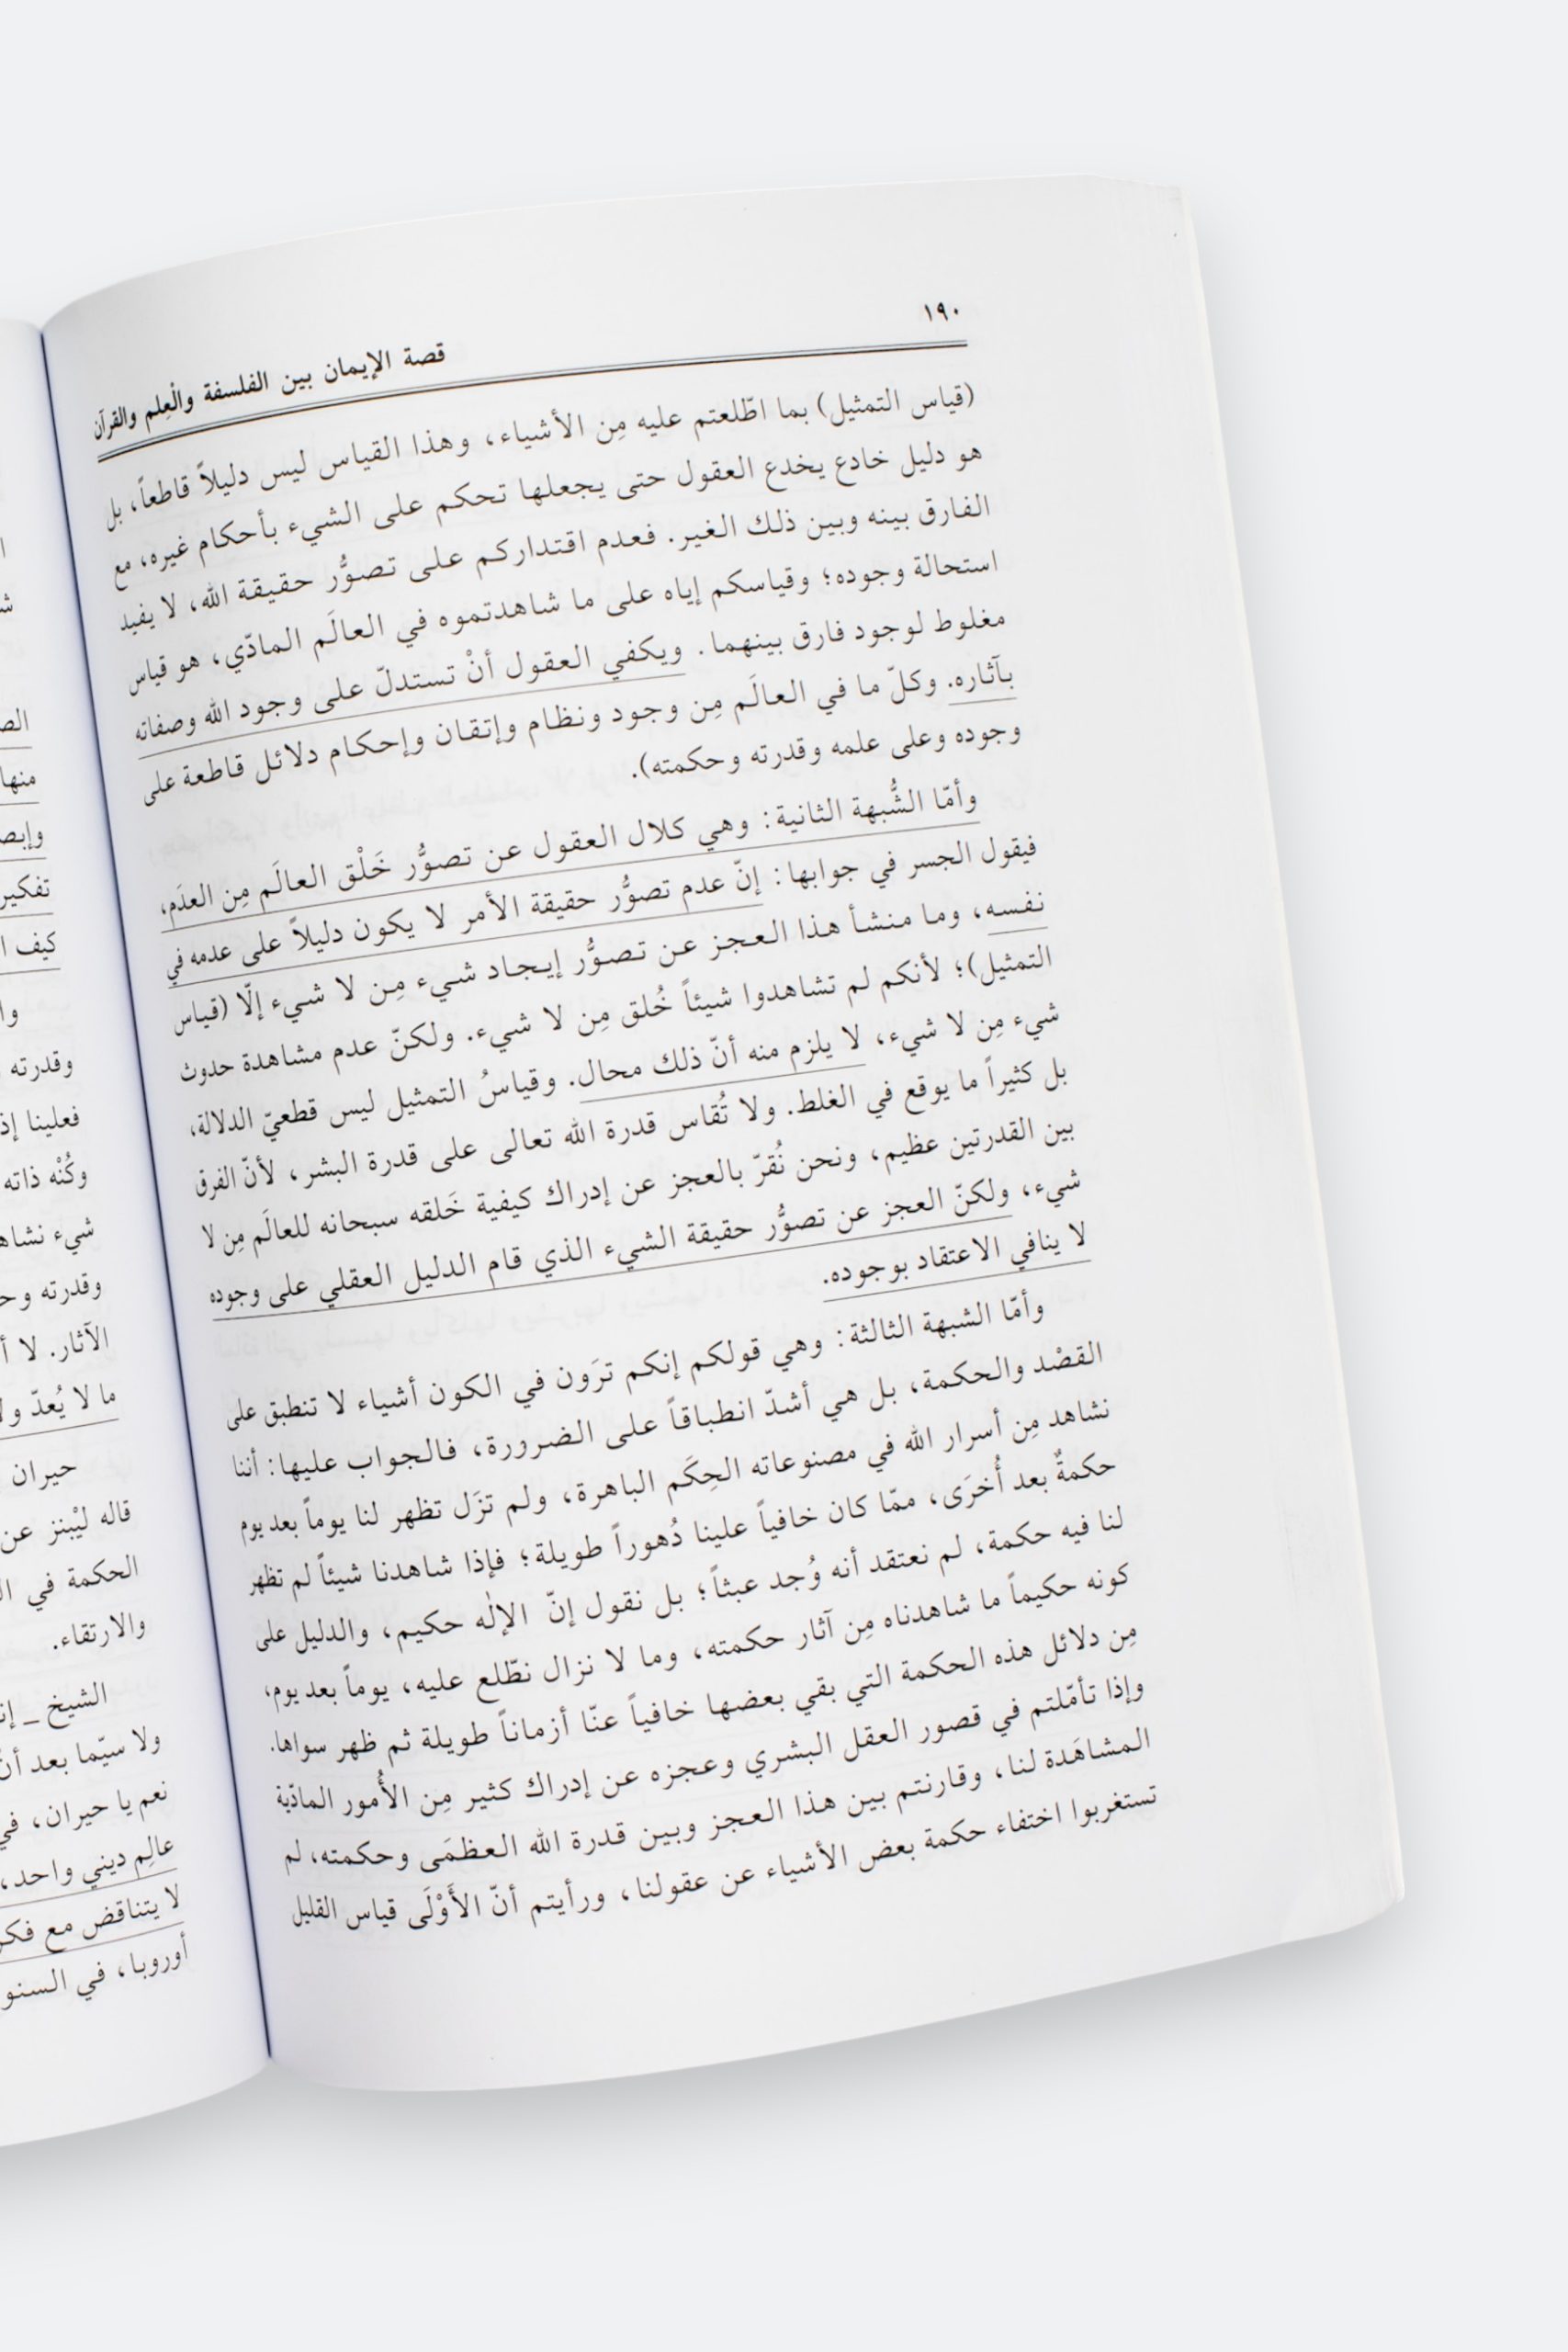 ١٩٠
قصة الإيمان بين الفلسفة والْعِلم والقرآن
(قياس التمثيل) بما اطّلعتم عليه مِن الأشياء، وهذا القياس ليس دليلاً قاطعاً، بل
هو دليل خادع يخدع العقول حتى يجعلها تحكم على الشيء بأحكام غيره، مع
الفارق بينه وبين ذلك الغير. فعدم اقتداركم على تصوُّر حقيقة الله، لا يفيد
استحالة وجوده؛ وقياسكم إياه على ما شاهدتموه في العالَم المادّي، هو قياس
مغلوط لوجود فارق بينهما. ويكفي العقول أنْ تستدلّ على وجود الله وصفاته
بآثاره. وكلّ ما في العالَم مِن وجود ونظام وإتقان وإحكام دلائل قاطعة على
وجوده وعلى علمه وقدرته وحكمته).
وأمّا الشُّبهة الثانية: وهي كلال العقول عن تصوُّر خَلْق العالَم مِن العدَم،
فيقول الجسر في جوابها: إنّ عدم تصوُّر حقيقة الأمر لا يكون دليلاً على عدمه في
نفسه، وما منشأ هذا العجز عن تصوُّر إيجاد شيء مِن لا شيء إلّا (قياس
التمثيل)؛ لأنكم لم تشاهدوا شيئاً خُلق مِن لا شيء. ولكنّ عدم مشاهدة حدوث
شيء مِن لا شيء، لا يلزم منه أنّ ذلك محال. وقياسُ التمثيل ليس قطعيّ الدلالة،
بل كثيراً ما يوقع في الغلط. ولا تُقاس قدرة الله تعالى على قدرة البشر، لأنّ الفرق
بين القدرتين عظيم، ونحن نُقرّ بالعجز عن إدراك كيفية خَلقه سبحانه للعالَم مِن لا
شيء، ولكنّ العجز عن تصوُّر حقيقة الشيء الذي قام الدليل العقلي على وجوده
لا ينافي الاعتقاد بوجوده.
وأمّا الشبهة الثالثة: وهي قولكم إنكم ترَون في الكون أشياء لا تنطبق على
القصْد والحكمة، بل هي أشدّ انطباقاً على الضرورة، فالجواب عليها: أننا
نشاهد مِن أسرار الله في مصنوعاته الحِكَم الباهرة، ولم تزَل تظهر لنا يوماً بعد يوم
حكمةٌ بعد أُخرَى، ممّا كان خافياً علينا دُهوراً طويلة؛ فإذا شاهدنا شيئاً لم تظهر
لنا فيه حكمة، لم نعتقد أنه وُجد عبثاً؛ بل نقول إنّ الإلٰه حكيم، والدليل على
كونه حكيماً ما شاهدناه مِن آثار حكمته، وما لا نزال نطّلع عليه، يوماً بعد يوم،
مِن دلائل هذه الحكمة التي بقي بعضها خافياً عنّا أزماناً طويلة ثم ظهر سواها.
وإذا تأمّلتم في قصور العقل البشري وعجزه عن إدراك كثير مِن الأُمور المادّية
المشاهَدة لنا، وقارنتم بين هذا العجز وبين قدرة الله العظمَى وحكمته، لم
تستغربوا اختفاء حكمة بعض الأشياء عن عقولنا، ورأيتم أنّ الأَوْلَى قياس القليل
منها
تفكير
كيف
وقدرته
فعلينا
وكُنْه ذاته
شيء
وقدرته
الآثار. لا
ما لا يُعدّ
حيران
قاله ليْبنز عن
الحكمة في
والارتقاء.
الشيخ ـ
ولا سيّما بعد
نعم يا حيران،
عالِم ديني واحد،
لا يتناقض مع
أوروبا، في